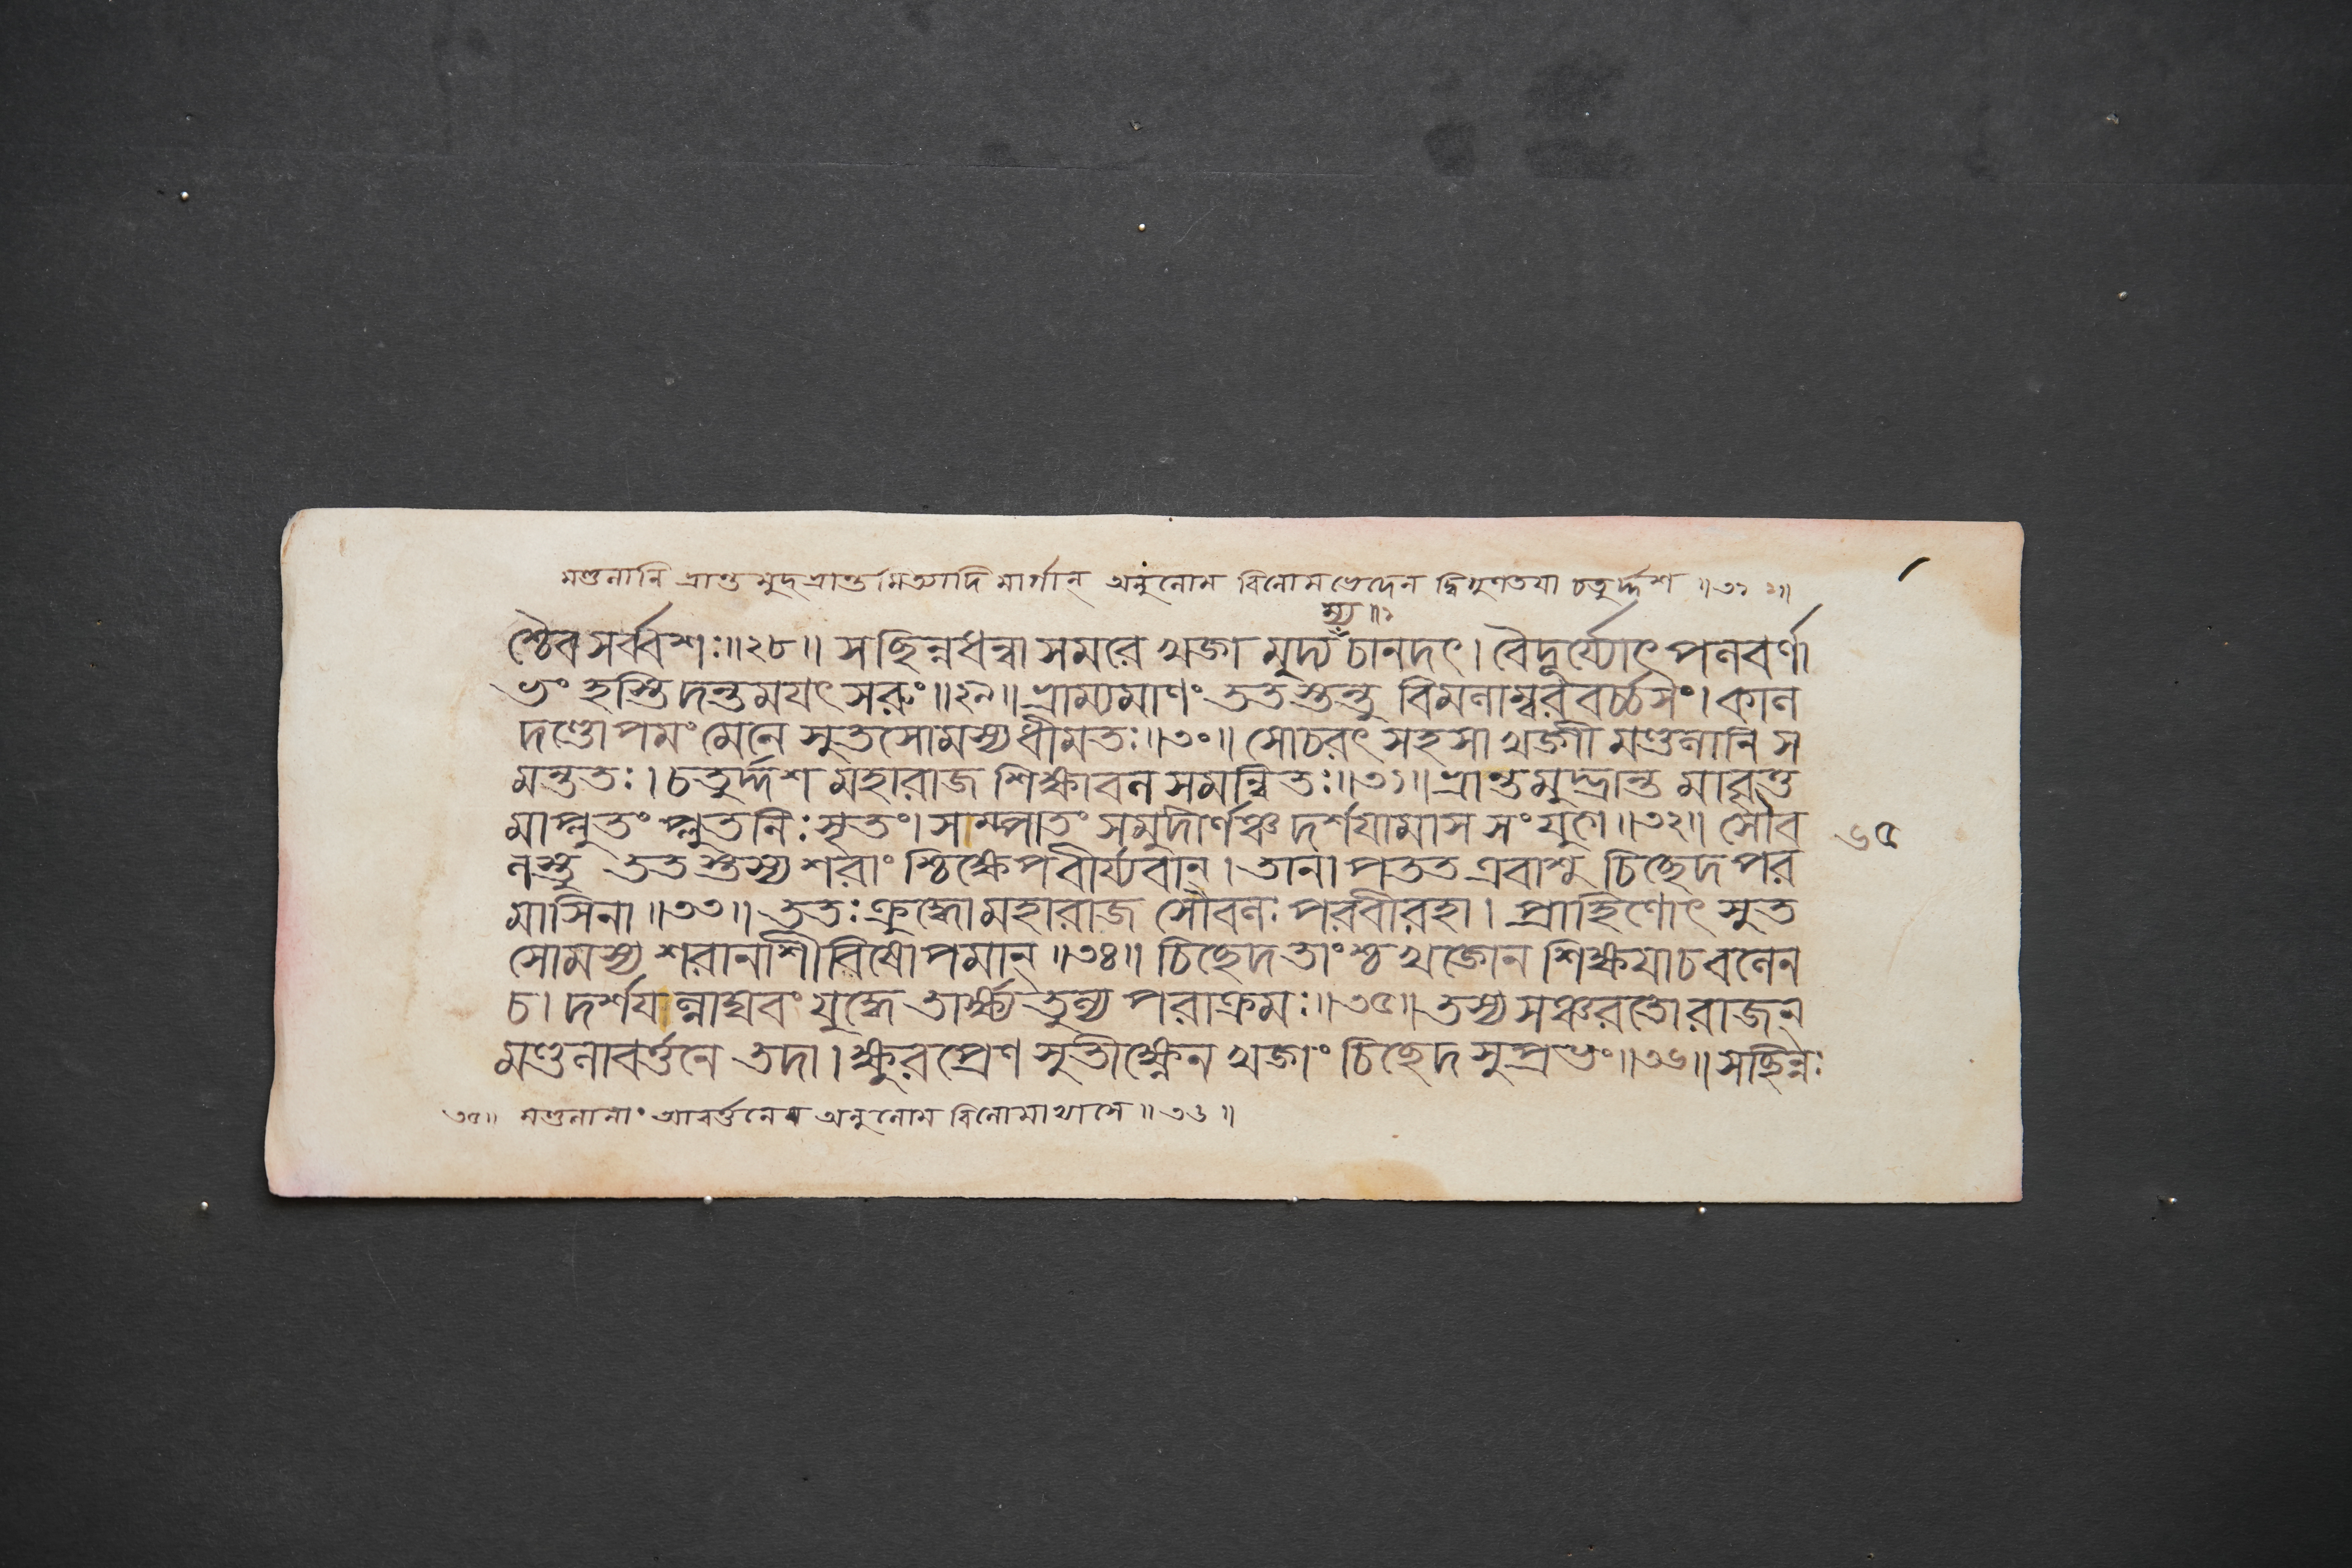 মণ্ডলানি ভ্রান্ত মুদ্ভ্রান্ত মিত্যাদি মার্গান্ অনুলোম বিলোমভেদেন দ্বিগুণতয়া চতুর্দ্দশ ॥৩১ ২॥
ম্য ॥১
শ্চৈব সর্ব্বশঃ॥২৮॥ সছিন্নধন্বা সমরে খড়্গ মুদ্যচানদৎ। বৈদূর্য্যোৎপলবর্ণা
ভং হস্তিদন্তময়ৎসরুং॥২৯॥ ভ্রাম্যমাণং ততস্তন্তু বিমলাম্বরবর্চ্চসং। কাল
দণ্ডোপমং মেনে সুতসোমস্য ধীমতঃ॥৩০॥ সোচরৎ সহসা খড়্গী মণ্ডলানি স
মন্ততঃ। চতুর্দ্দশ মহারাজ শিক্ষাবল সমন্বিতঃ॥৩১॥ ভ্রান্তমুদ্ভ্রান্ত মাবৃত্ত
মাপ্লুতং প্লুতনিঃসৃতং। সাম্পাতং সমুদীর্ণঞ্চ দর্শয়ামাস সংযুগে॥৩২॥ সৌব
লস্তু ততস্তস্য শরাংশ্চিক্ষেপ বীর্য্যবান্। তানাপতত এবাশু চিচ্ছেদ পর
মাসিনা॥৩৩॥ ততঃ ক্রুদ্ধো মহারাজ সৌবলঃ পরবীরহা। প্রাহিণোৎ সুত
সোমস্য শরানশীবিষোপমান্॥৩৪॥ চিচ্ছেদ তাংশ্চ খড়্গেন শিক্ষয়াচ বলেন
চ। দর্শয়ন্নাঘবং যুদ্ধে তার্ক্ষ্য তুল্য পরাক্রমঃ॥৩৫॥ তস্য সঞ্চরতো রাজন্
মণ্ডলাবর্ত্তনে তদা। ক্ষুরপ্রেণ সুতীক্ষ্ণেন খড়্গং চিচ্ছেদ সুপ্রভং॥৩৬॥ সছিন্নঃ
৬৫
৩৫॥ মণ্ডলানাং আবর্ত্তনে অনুলোম বিলোমাখ্যাসে॥৩৬॥